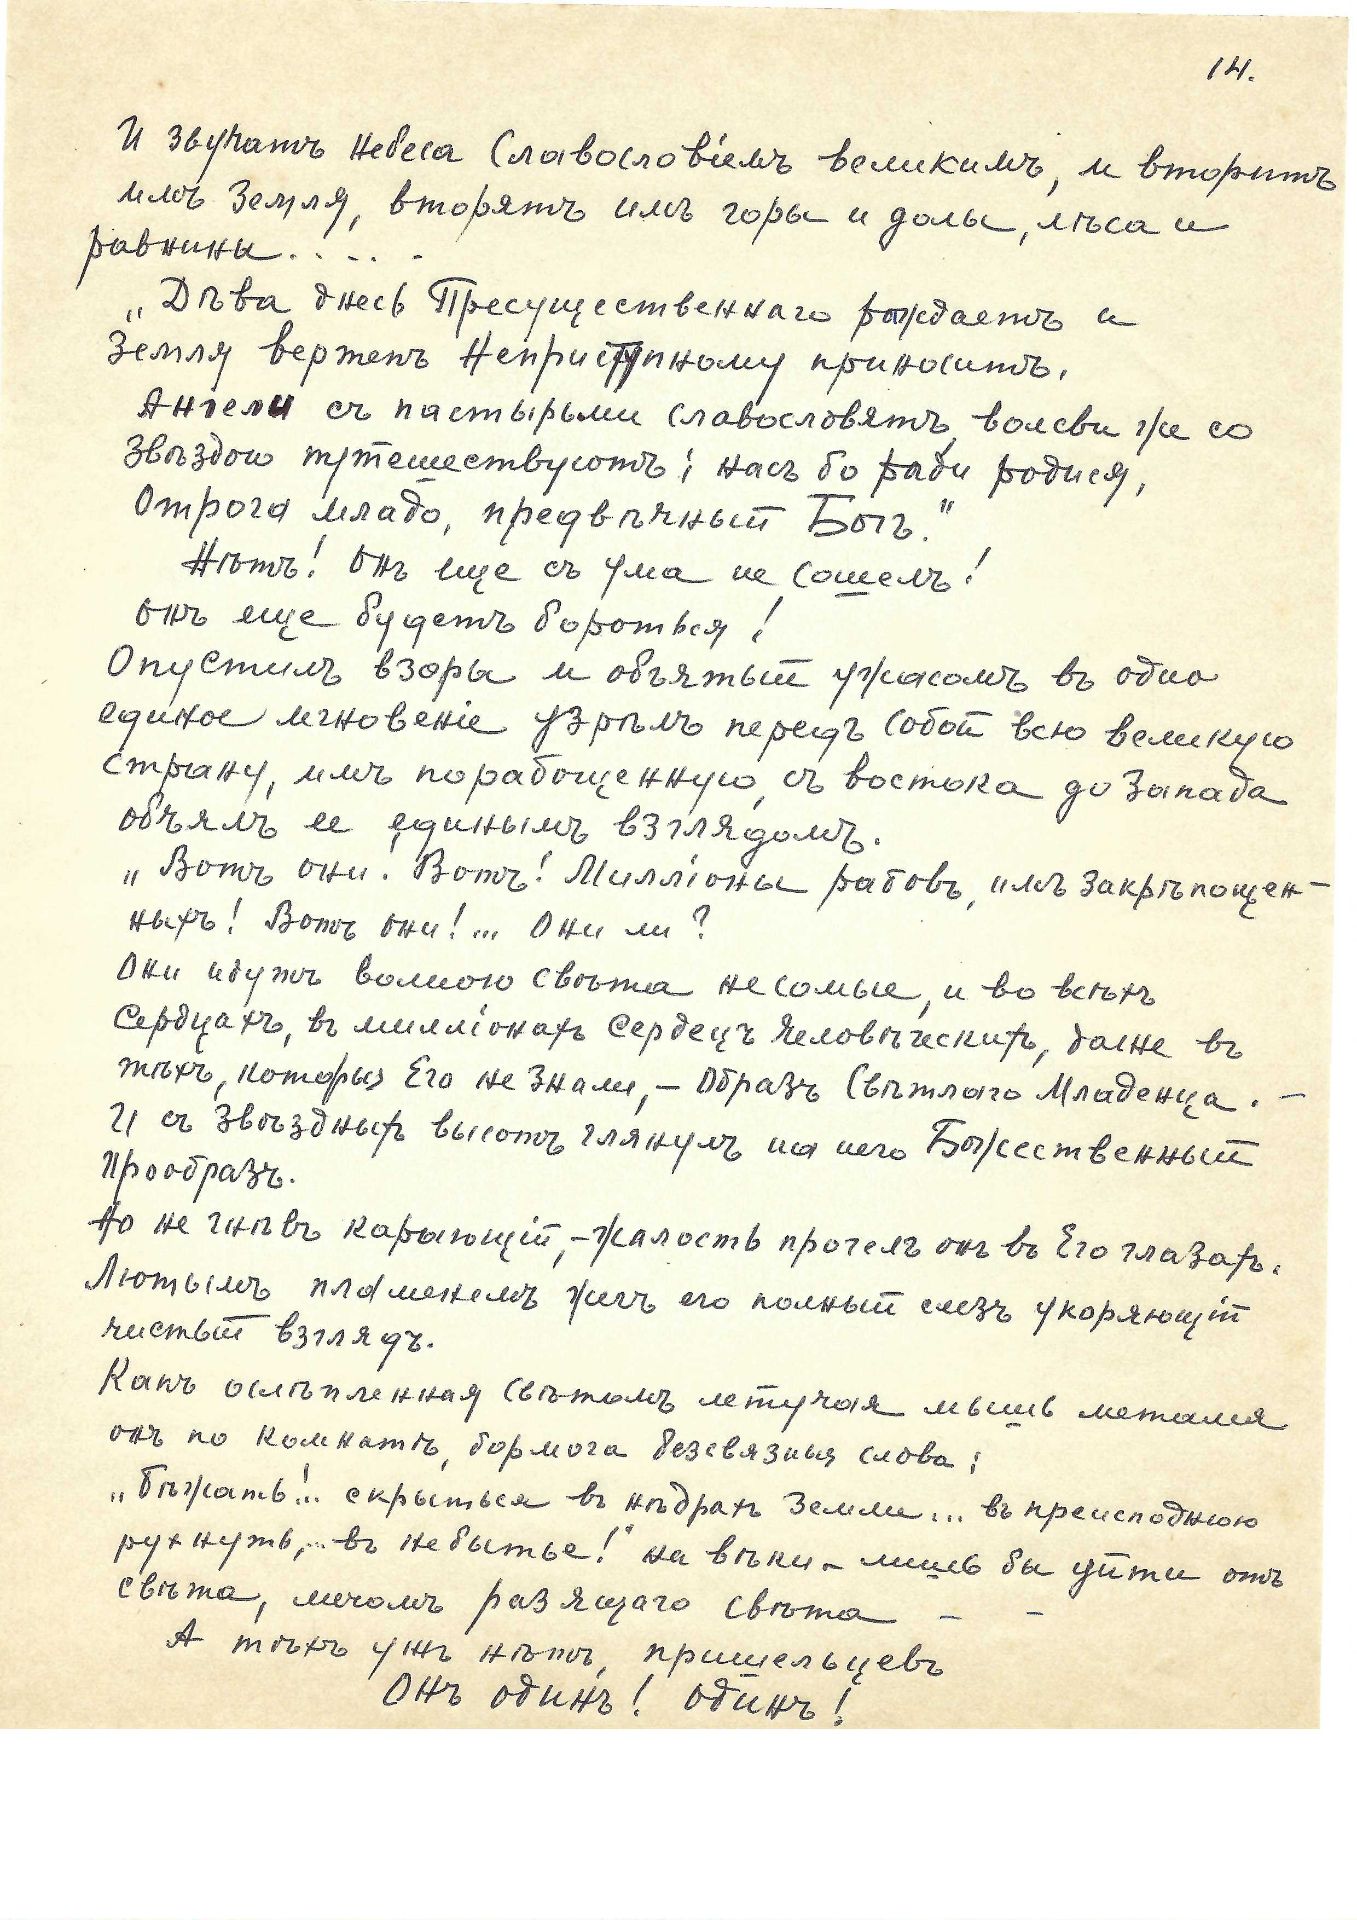 14.
И звучатъ небеса Славословіемъ великимъ, и вторитъ
имъ Земля, вторятъ имъ горы и долы, лѣса и
равнины.....
„Дѣва днесь Пресущественнаго рождаетъ и
Земля вертепъ Неприступному приноситъ,
Ангели съ пастырьми славословятъ, волсви же со
Звѣздою путешествуютъ; насъ бо ради родися,
Отроча младо, предвѣчный Богъ."
Нѣтъ! Онъ еще съ ума не сошелъ!
Онъ еще будетъ бороться!
Опустилъ взоры и объятый ужасомъ въ одно
единое мгновеніе узрѣлъ передъ собой всю великую
страну, имъ порабощенную, съ востока до Запада
объялъ ее единымъ взглядомъ.
„Вотъ они! Вотъ! Милліоны рабовъ, имъ закрѣпощен-
ныхъ! Вотъ они!... Они ли?
Они идутъ волною свѣта несомые, и во всѣхъ
Сердцахъ, въ милліонахъ Сердецъ человѣческихъ, даже въ
тѣхъ, которыя Его не знали, – Образъ Свѣтлаго Младенца. –
И съ Звѣздныхъ высотъ глянулъ на него Божественный
Прообразъ.
Но не гнѣвъ карающій, – жалость прочелъ онъ въ Его глазахъ.
Лютымъ пламенемъ жегъ его полный слезъ укоряющій
чистый взглядъ.
Какъ ослѣпленная свѣтомъ летучая мышь метался
онъ по комнатѣ, бормоча безсвязныя слова:
„Бѣжать!.. скрыться въ нѣдрахъ Земли... въ преисподнюю
рухнуть,... въ небытье!" на вѣки – лишь бы уйти отъ
свѣта, мечомъ разящаго свѣта – –
А тѣхъ ужъ нѣтъ, пришельцевъ
Онъ одинъ! одинъ!